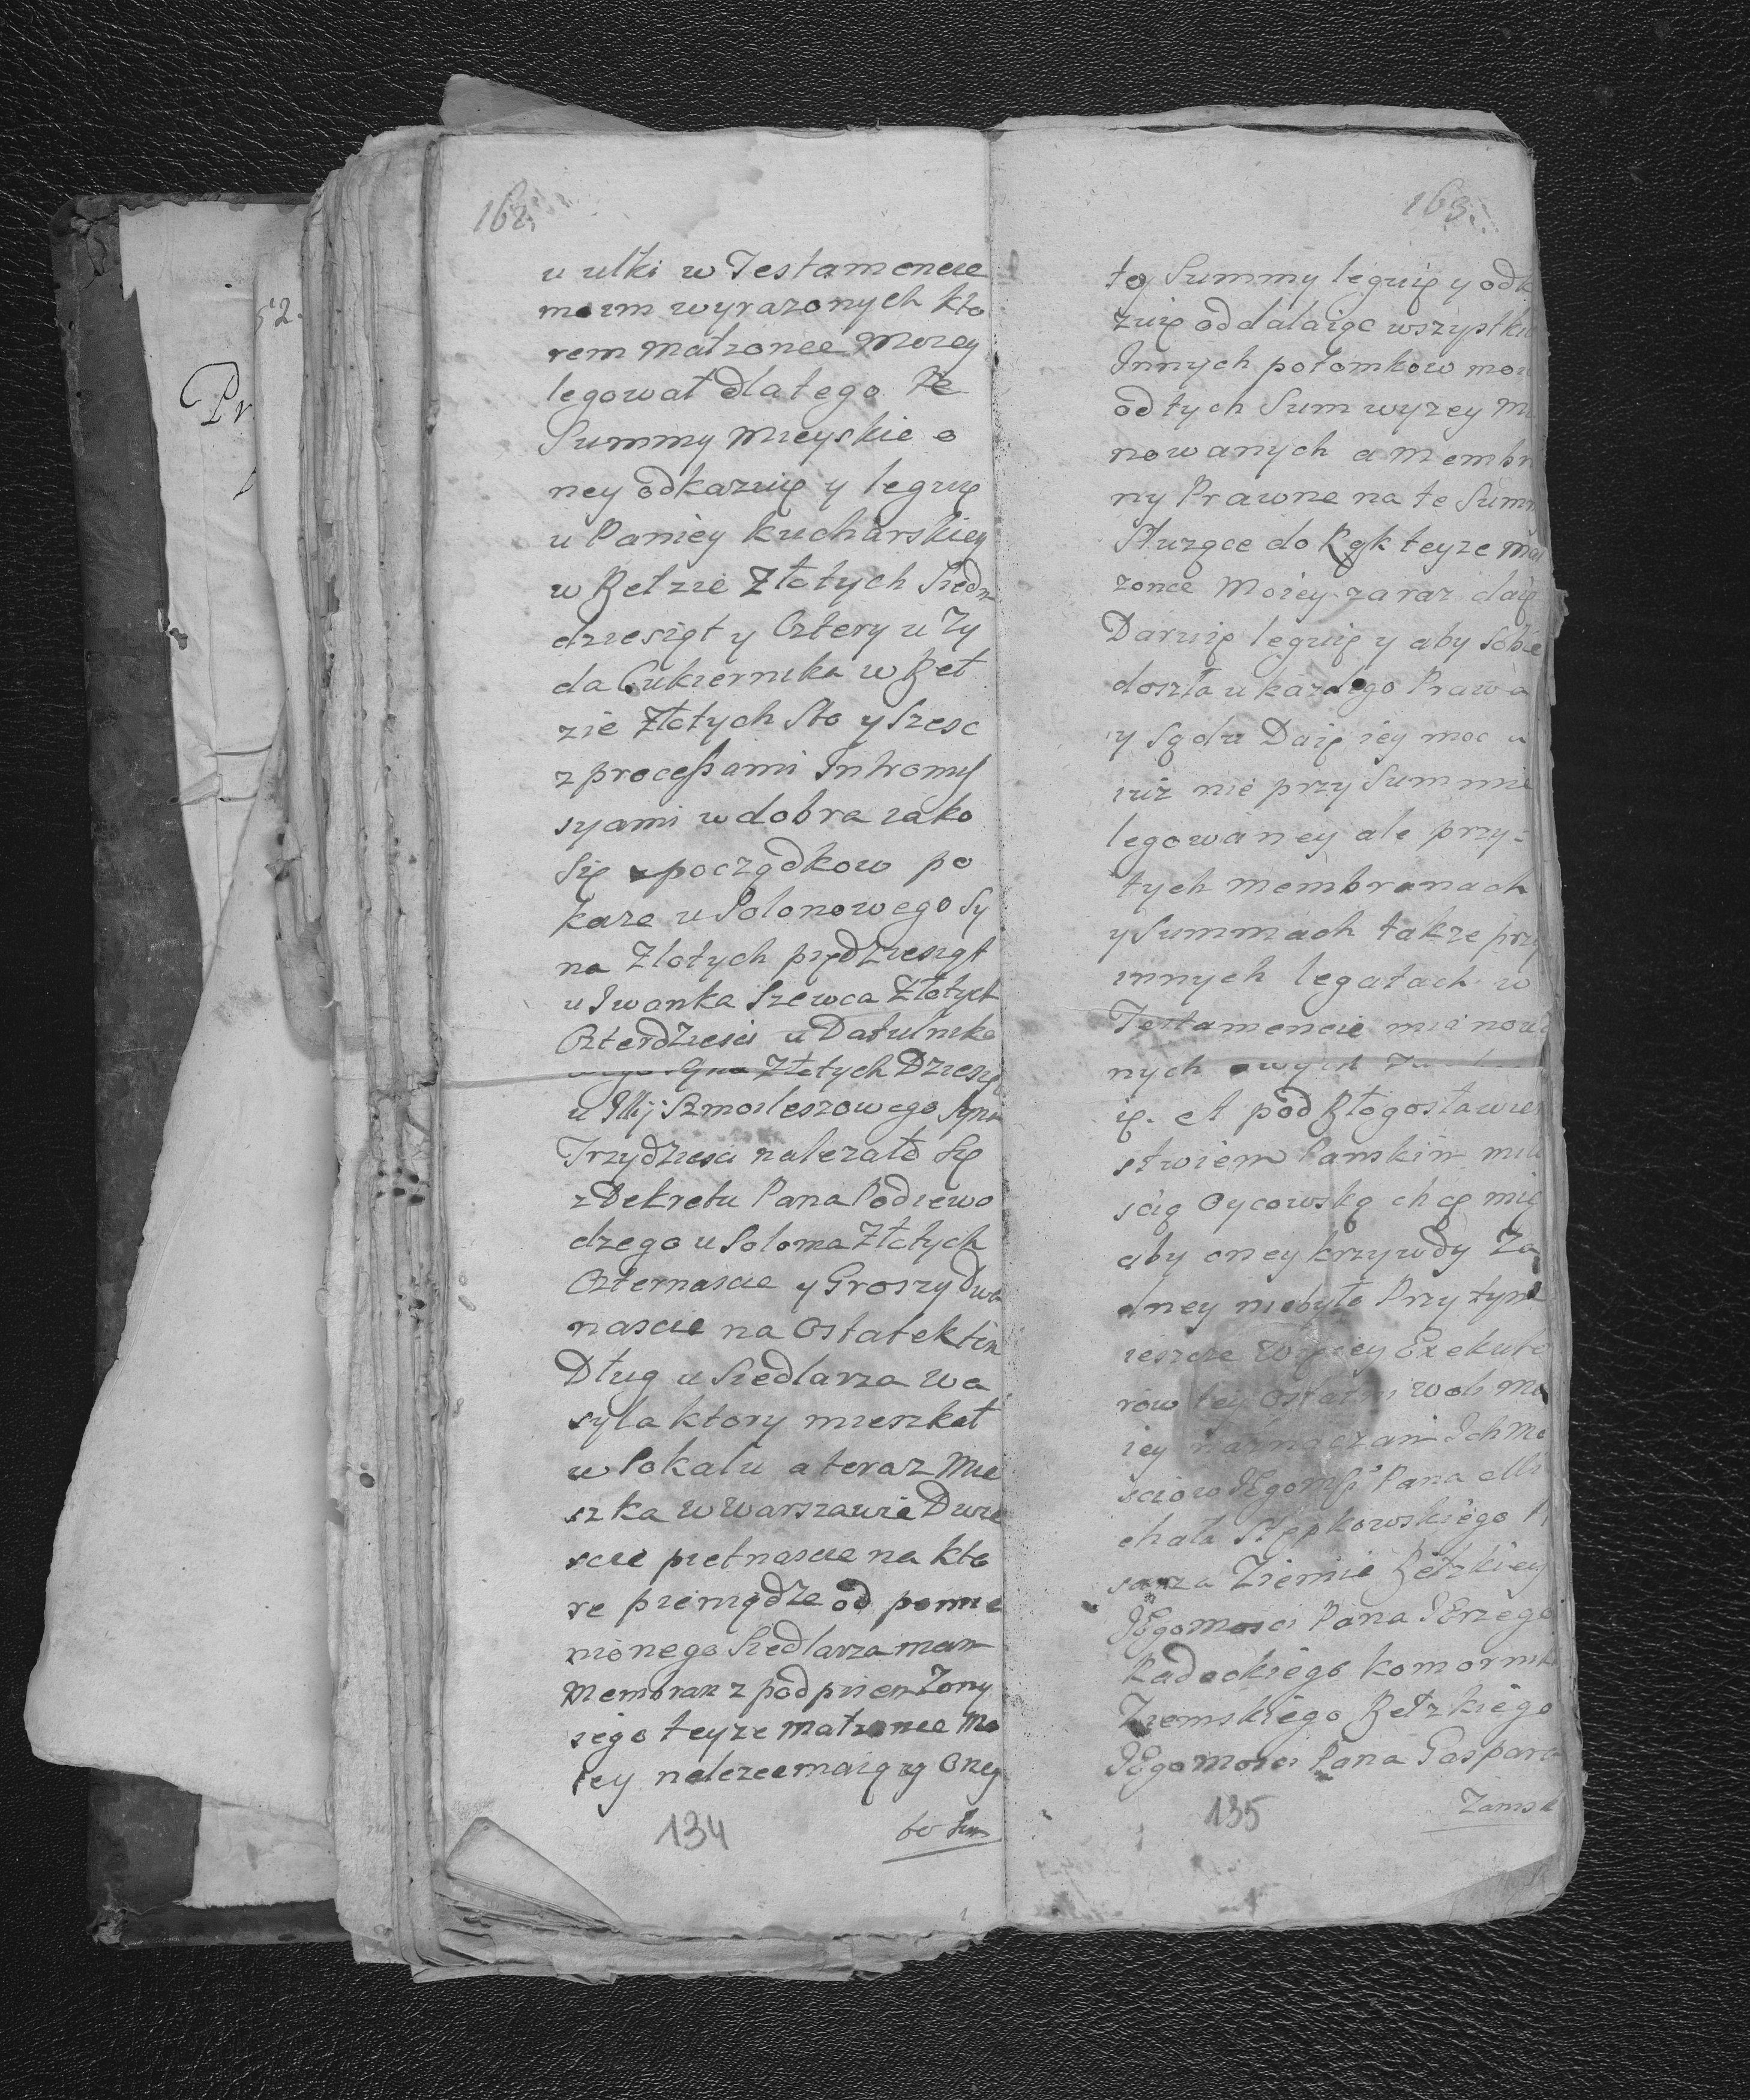 162.
u ulki w Testamencie
moim wyrazonych kto
rem Małzonce Moiey
legował dla tego Te
Summy Mieyskie o
ney odkazuię y leguię
u Paniey Kucharskiey
w Bełzie Złotych Siedm
dziesiąt y Cztery u Zy
da Cukiernika w Beł
zie Złotych Sto y szesc
z processami Intromis
syami w dobra iako
się z począdkow po
kaze u Solonowego Sy
na Złotych piędziesiąt
u Iwanka Szewca Złotych
Czterdziesci u Datulnika
Złotych Dziesię
u Illij Szmoileszowego Syna
Trzydziesci nalezało Się
z Dekretu Pana Podiewo
dzego u Soloma Złotych
Czternascie y Groszy Dwa
nascie na Ostatek ten
Dług u Siedlarza Wa
syla ktory mieszkał
w Sokalu a teraz Mie
szka w Warszawie Dwie
scie pietnascie na kto
re pieniądze od pomie
nionego Siedlarza mam
Membran z podpisem Zony
iego teyze Małzonce Mo
iey nalezec maią y Oney
134
163.
tey Summy leguię y odk
zuię oddalaiąc wszystkie
Innych potomkow moi
od tych Sum wyzey Mi
nowanych a Membr
ny Prawne na te Sum
Słuzące do Rąk teyze Mał
zonce Moiey zaraz daię
Daruię leguię y aby sobie
doszła u kazdego Prawa
y Sądu Daię iey moc u
iuz nie przy Summie
legowaney ale przy-
tych Membranach
y Summach takze przy
innych legatach w
Testamencie mianowa
nych
ię. A pod Błogosławien
stwiem Panskim miło
scią Oycowską chcę mię
aby oney krzywdy Za
dney niebyło Przytym
ieszcze więcey Exekuto
row tey ostatni woli Mo
iey naznaczam Ich Mo
sciow JEgomsi Pana Mi
chała Stępkowskiego Pi
sarza Ziemie Bełzkiey
JEgomosci Pana JErzego
Radeckiego Komornika
Ziemskiego Bełzkiego
JEgomosci Pana Gaspara
135
Zamsk
52.
Pr